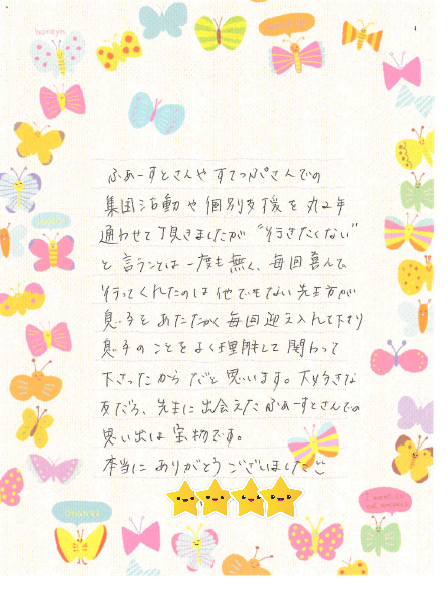 honeyh
ふぁーすとさんや すてっぷさんでの
集団活動や個別支援を丸2年
通わせて頂きましたが“行きたくない”
と言うことは一度も無く、毎回喜んで
行ってくれたのは他でもない先生方が
息子をあたたかく毎回迎え入れて下さり
息子のことをよく理解して関わって
下さったからだと思います。大好きな
友だち、先生に出会えたふぁーすとさんでの
思い出は宝物です。
本当にありがとうございました
I want to